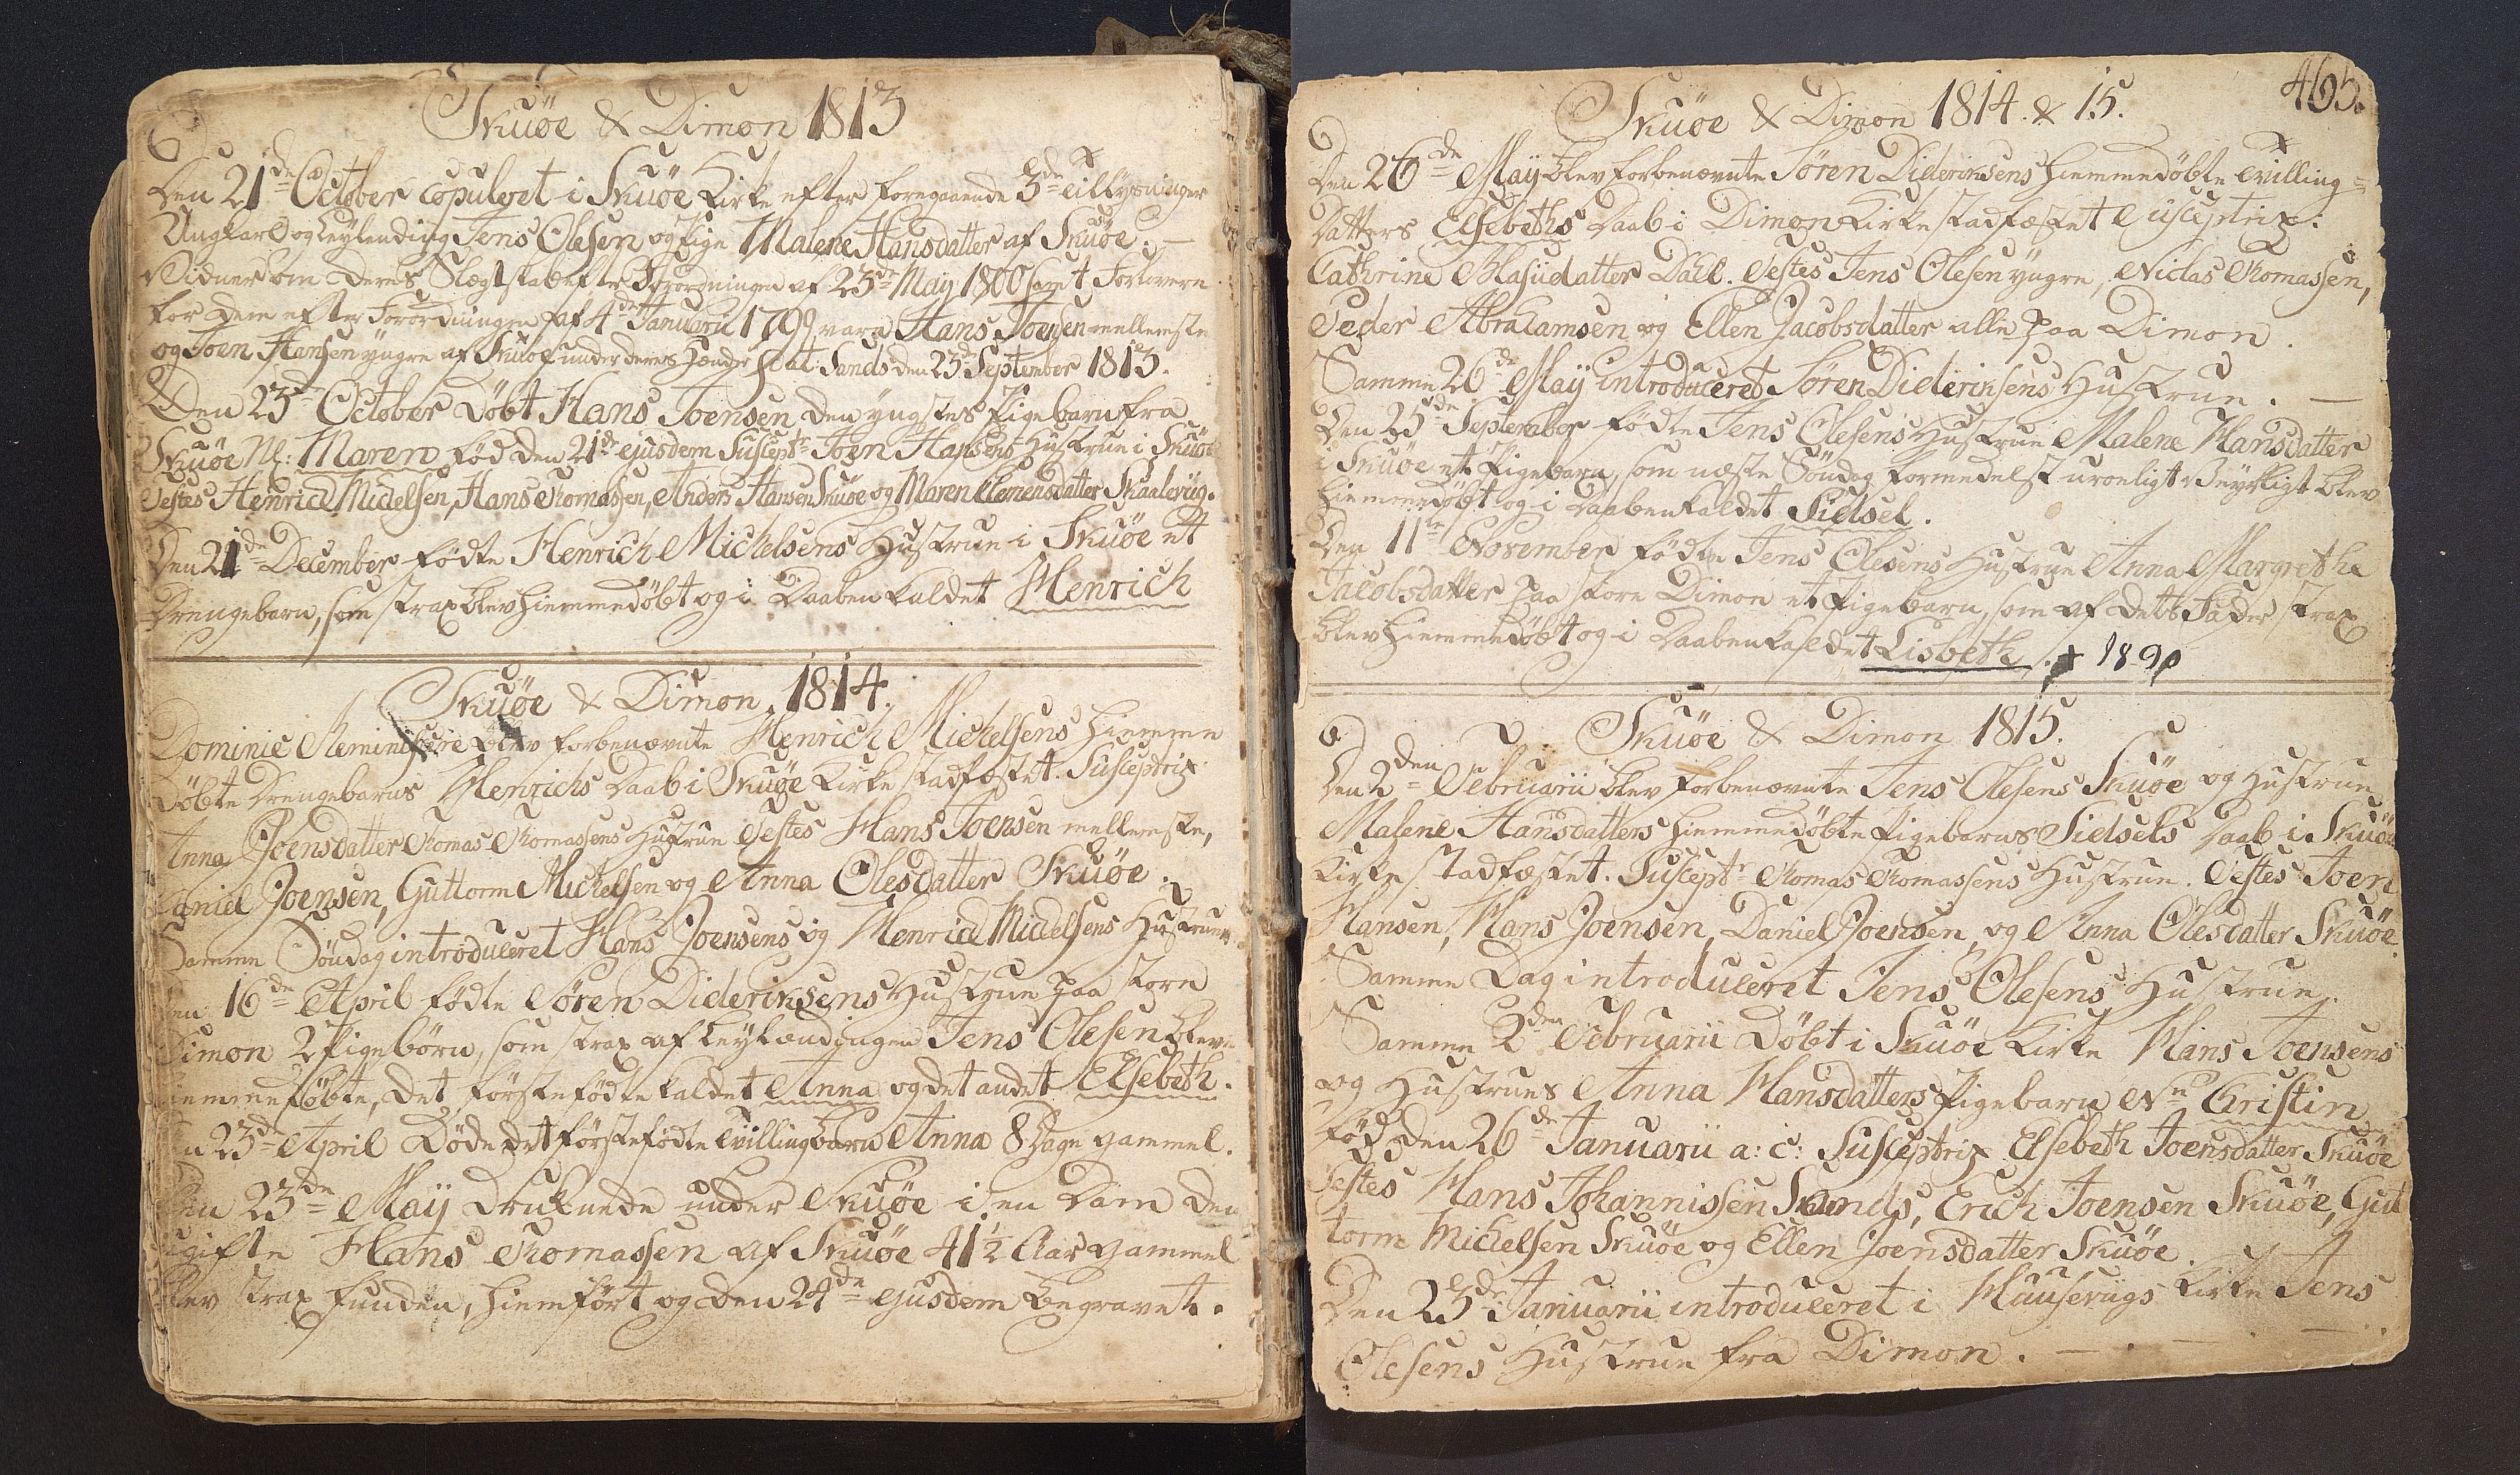 Skuöe & Dimon 1813
Den 21de October copuleret i Skuöe Kirke efter foregaaende 3de Tillysninger
Ungkarl og Leylending Jens Olesen og Pige Malene Hansdatter af Skuöe. —
Vidner om deres Slegtskab efter Forordningen af 23de May 1800 samt Forlovere
for dem efter Forordningen af 4de Januarii 1799 vare Hans Joensen mellemste
og Joen Hansen yngre af Skuöe under deres Hænder dat. Sands den 23de September 1813.
Den 23de October Döbt Hans Joensen den yngstes Pigebarn fra
Skuöe Nl: Maren föd den 21de ejusdem Suscept: Joen Hansens Hustrue i Skuöe
Testes Henrich Michelsen, Hans Thomassen, Anders Hansen Skuöe og Maren Clemensdatter Skaalevüg.
Den 21de December födte Henrich Michelsens Hustrue i Skuöe et
Drengebarn, som strax blev hiemmedöbt og i Daaben kaldet Henrich
Skuöe & Dimon 1814.
Dominic Reminiscere blev forbenævnte Henrich Michelsens hiemme
döbte Drengebarns Henrichs Daab i Skuöe Kirke stadfæstet. Susceptrix
Anna Joensdatter Thomas Thomassens Hustrue Testes Hans Joensen mellemste,
Daniel Joensen, Guttorm Michelsen og Anna Olesdatter Skuöe.
Samme Söndag introduceret Hans Joensens og Henrich Michelsens Hustruer
Den 16de April födte Sören Dideriksens Hustrue paa store
Dimon 2 Pigebörn, som strax af Leylendingen Jens Olesen blev
hiemmedöbte, det förstefödte kaldet Anna og det andet Elsebeth.
Den 23de April Döde det förstefödte Tvillingbarn Anna 8 Dage gammel.
Den 23de Maÿ druknede under Skuöe i en Dam den
ugifte Hans Thomassen af Skuöe 41½ Aar gammel
blev strax funden, hiemfört og den 24de ejusdem begravet.
465.
Skuöe & Dimon 1814. & 15.
Den 26de Maÿ blev forbenævnte Sören Dideriksens hiemmedöbte Tvilling=
Datters Elsebeths Daab i Dimon Kirke stadfæstet Susceptrix:
Cathrine Blasiidatter Dahl. Testes Jens Olesen yngre, Niclas Thomassen,
Peder Abrahamsen og Ellen Jacobsdatter alle paa Dimon.
Samme 26de Maÿ introduceret Sören Dideriksens Hustrue. —
Den 25de September födte Jens Olesens Hustrue Malene Hansdatter
i Skuöe et Pigebarn, som næste Söndag formedelst uroeligt Veyrligt blev
hiemmedöbt og i Daaben kaldet Sielsel.
Den 11te November födte Jens Olesens Hustrue Anna Margrethe
Jacobsdatter paa store Dimon et Pigebarn, som af dets Fader strax
blev hiemmedöbt og i Daaben kaldet Lisbeth. + 1890
Skuöe & Dimon 1815.
Den 2den Februarii blev forbenævnte Jens Olesens Skuöe og Hustrue
Malene Hansdatters hiemmedöbte Pigebarns Sielsels Daab i Skuöe
Kirke stadfæstet. Suscept: Thomas Thomassens Hustrue. Testes Joen
Hansen, Hans Joensen, Daniel Joensen, og Anna Olesdatter Skuöe.
Samme Dag introduceret Jens Olesens Hustrue.
Samme 2den Februarii Döbt i Skuöe Kirke Hans Joensens
og Hustrues Anna Hansdatters Pigebarn Nl: Christin
föd den 26de Januarii a: c: Susceptrix Elsebeth Joensdatter Skuöe
Testes Hans Johannissen Sands, Erich Joensen Skuöe, Gut
torm Michelsen Skuöe og Ellen Joensdatter Skuöe.
Den 23de Januarii introduceret i Hüuserügs Kirke Jens
Olesens Hustrue fra Dimon. —